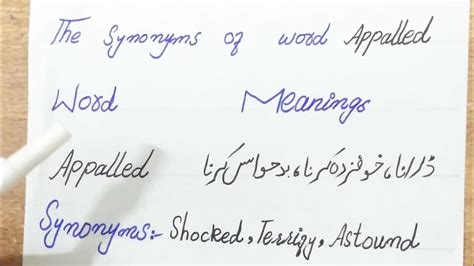 The Synonyms of word Appalled
Word Meanings
Appalled ڈرانا، خوفزدہ کرنا، بدحواس کرنا
Synonyms:- Shocked, Terrify, Astound